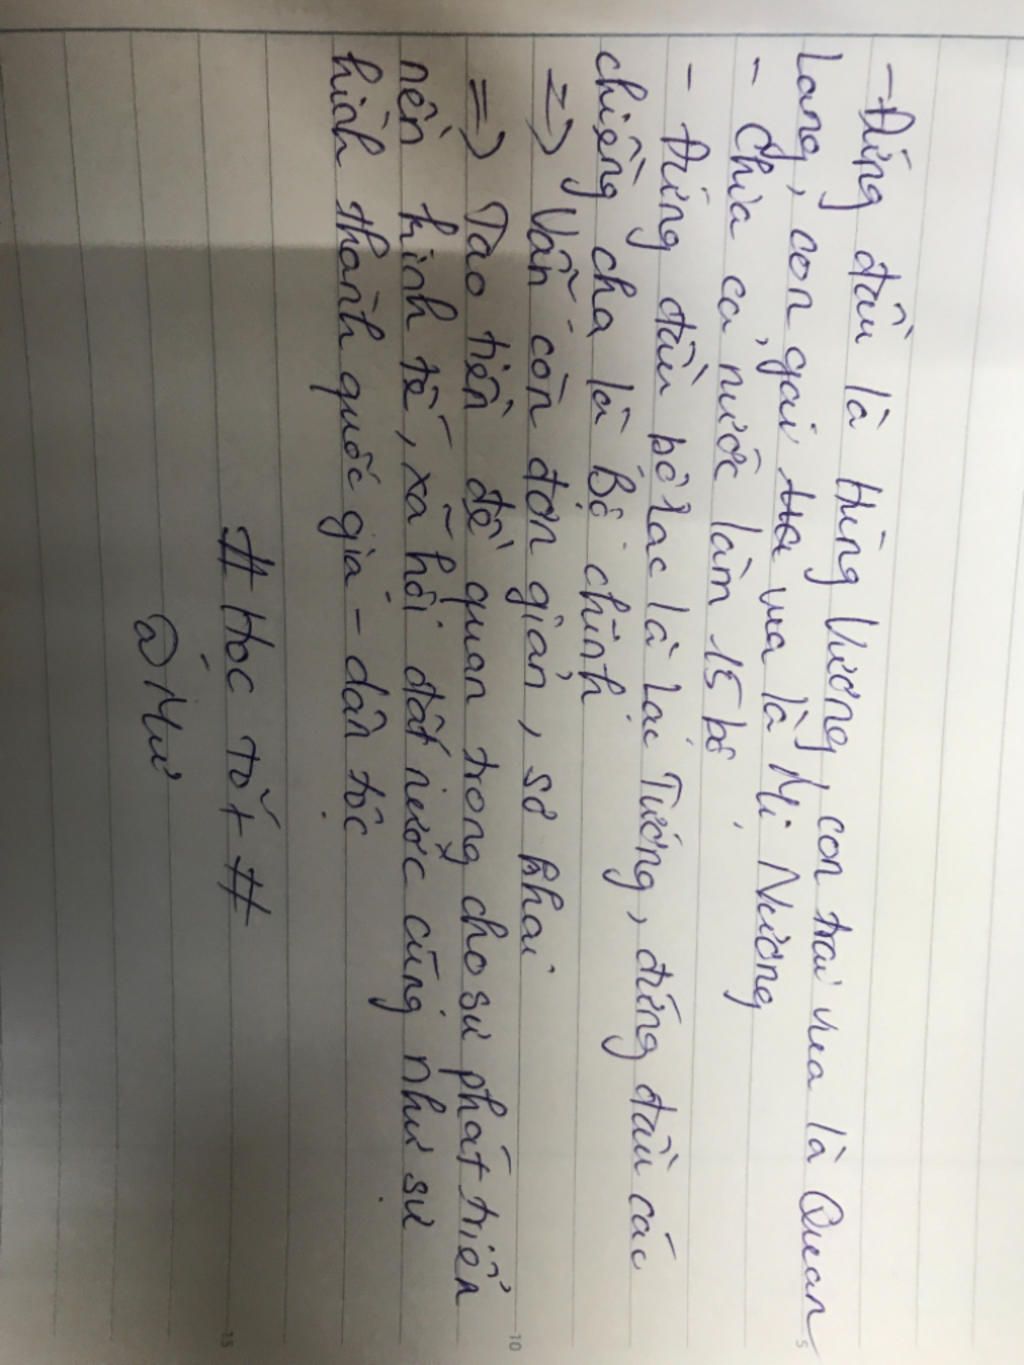 - Đứng đầu là Hùng Vương, con trai vua là Quan
Lang, con gái vua là Mị Nương
- Chia cả nước làm 15 bộ
- Đứng đầu bộ lạc là Lạc Tướng, đứng đầu các
chiềng chạ là Bồ chính
=> Vẫn còn đơn giản, sơ khai
=> Tạo tiền đề quan trọng cho sự phát triển
nền kinh tế, xã hội đất nước cũng như sự
hình thành quốc gia - dân tộc
# Học tốt #
5
10
15